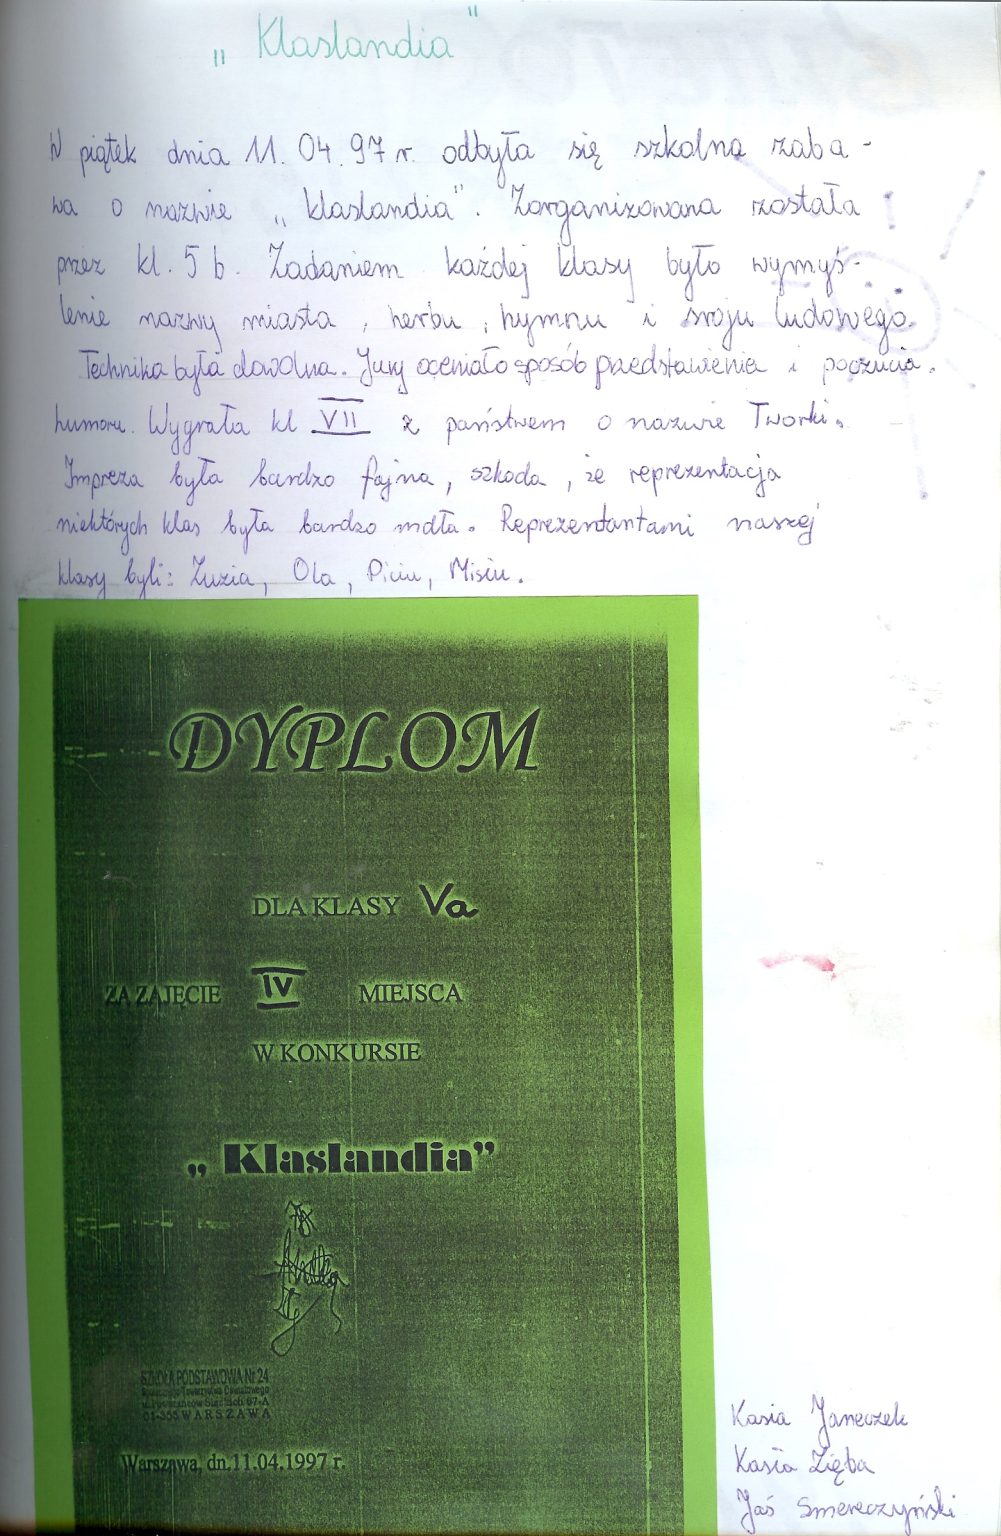 „Klaslandia"
W piątek dnia 11.04.97 r. odbyła się szkolna zaba-
wa o nazwie „klaslandia". Zorganizowana została
przez kl. 5 b. Zadaniem każdej klasy było wymyś-
lenie nazwy miasta, herbu, hymnu i stroju ludowego.
Technika była dowolna. Jury oceniało sposób przedstawienia i poczucia
humoru. Wygrała kl VII z państwem o nazwie Tworki.
Impreza była bardzo fajna, szkoda, że reprezentacja
niektórych klas była bardzo mdła. Reprezentantami naszej
klasy byli: Zuzia, Ola, Piciu, Misiu.
DYPLOM
DLA KLASY Va
ZA ZAJĘCIE IV MIEJSCA
W KONKURSIE
„Klaslandia”
SZKOŁA PODSTAWOWA Nr 24
Społecznego Towarzystwa Oświatowego
ul. Powstańców Śląskich 67-A
01-355 WARSZAWA
Warszawa, dn.11.04.1997 r.
Kasia Janeczek
Kasia Zięba
Jaś Smereczyński